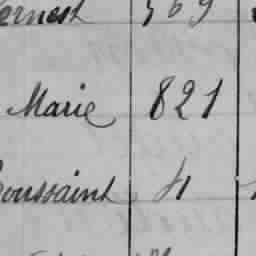 ernest 569
Marie 821
oussaint 41